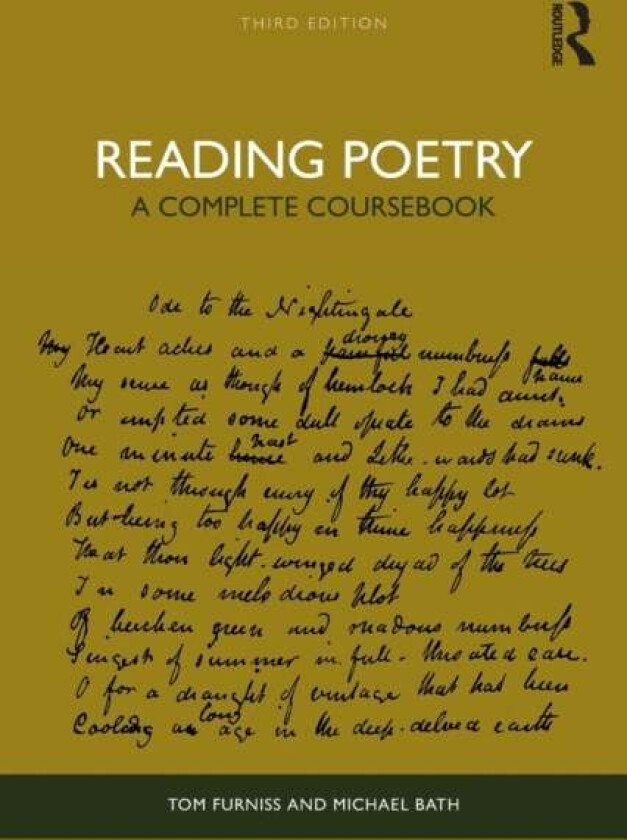 THIRD EDITION
ROUTLEDGE
READING POETRY
A COMPLETE COURSEBOOK
Ode to the Nightingale
My Heart aches and a drowsy painful numbness falls pains
My sense as though of hemlock I had drunk,
Or emptied some dull opiate to the drains
One minute past hence and Lethe-wards had sunk.
Tis not through envy of thy happy lot
But being too happy in thine happiness
That thou light-winged dryad of the trees
In some melodious plot
Of beechen green and shadows numberless
Singest of summer in full-throated ease.
O for a draught of vintage that has been
Cooling an long age in the deep-delved earth
TOM FURNISS AND MICHAEL BATH